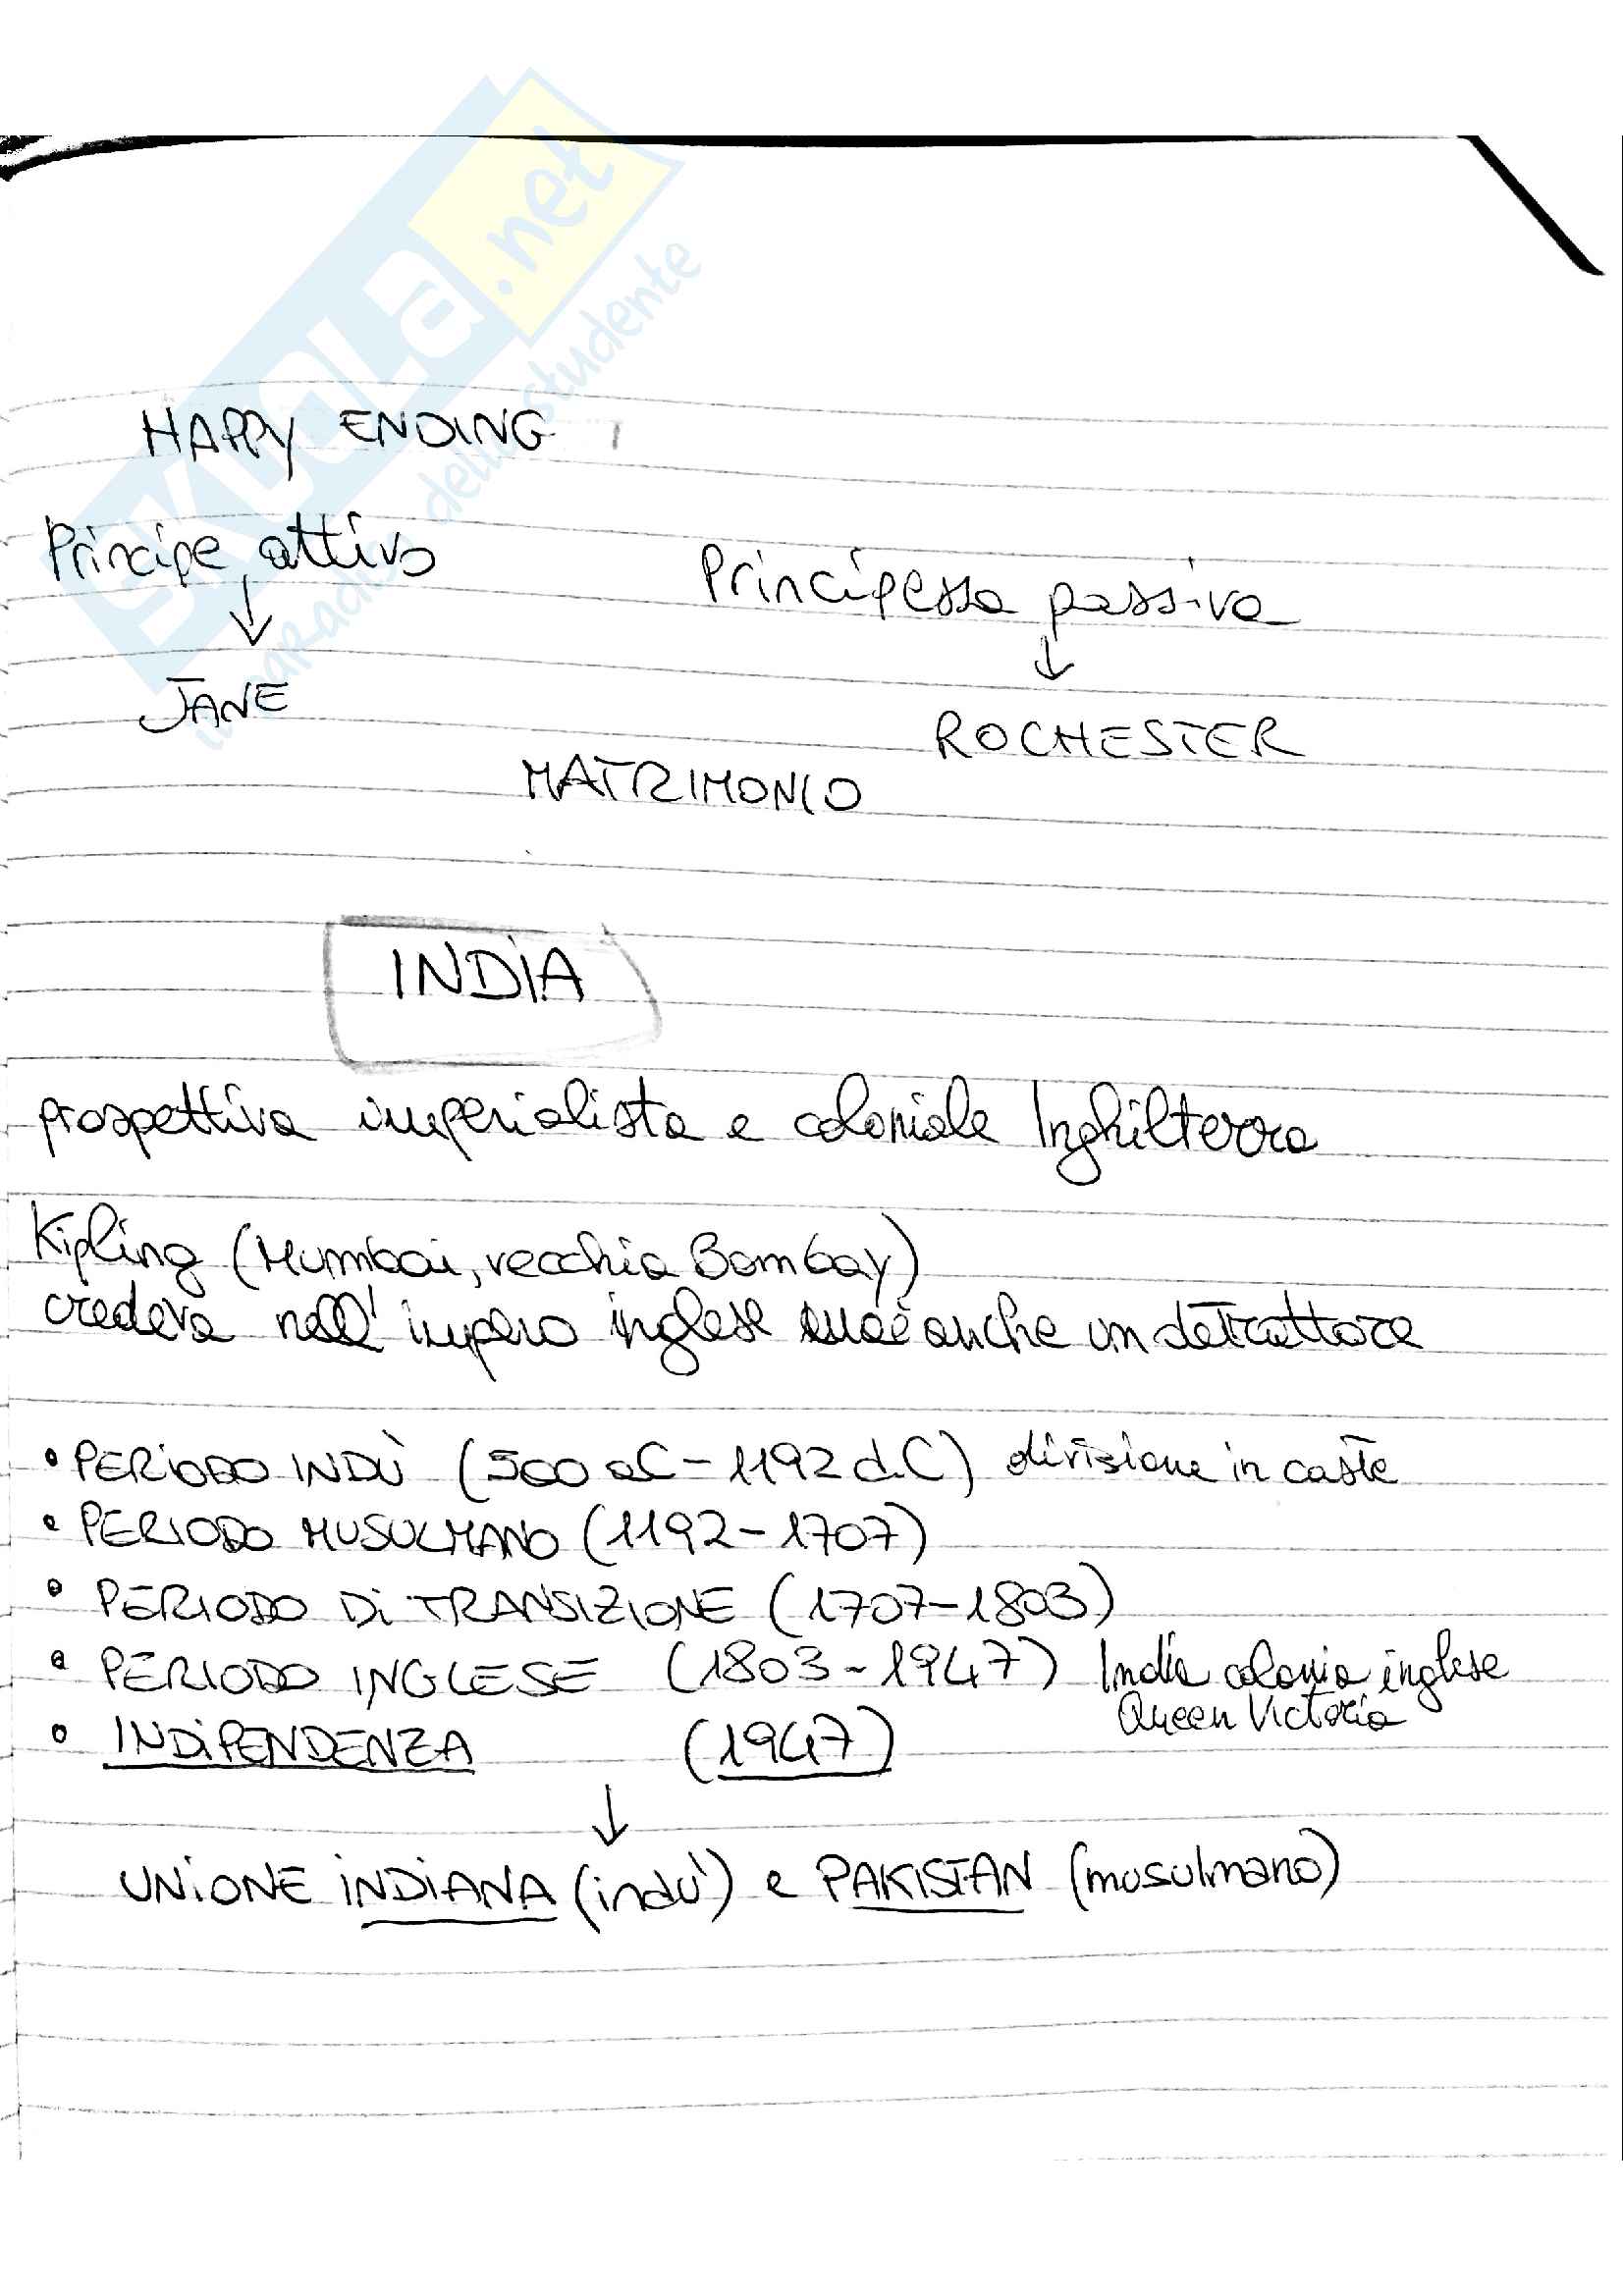 SKUOLA.net
il paradiso dello studente
HAPPY ENDING
Principe attivo
Principessa passiva
↓
↓
JANE
ROCHESTER
MATRIMONIO
INDIA
prospettiva imperialista e coloniale Inghilterra
Kipling (Mumbai, vecchia Bombay)
credeva nell'impero inglese anche un detrattore
• PERIODO INDÙ (500 aC - 1192 d.C) divisione in caste
• PERIODO MUSULMANO (1192-1707)
• PERIODO DI TRANSIZIONE (1707-1803)
• PERIODO INGLESE (1803-1947) India colonia inglese
Queen Victoria
• INDIPENDENZA (1947)
↓
UNIONE INDIANA (indù) e PAKISTAN (musulmano)